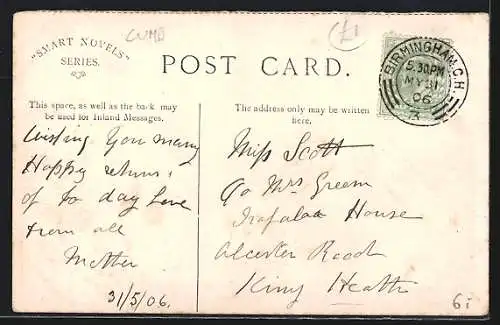 "SMART NOVELS"
SERIES.
CUMB
£1
POST CARD.
BIRMINGHAM. C.H.
5.30PM
MY 31
06
This space, as well as the back may
be used for Inland Messages.
The address only may be written
here.
Wishing you many
Happy returns
of to day Love
from all
Mother
31/5/06.
Miss Scott
c/o Mrs Green
House
Alcester Road
King Heath